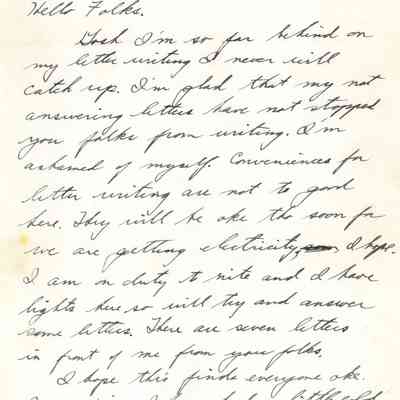 Hello Folks.
Gosh I'm so far behind on
my letter writing I never will
catch up. I'm glad that my not
answering letters have not stopped
you folks from writing. I'm
ashamed of myself. Conveniences for
letter writing are not to good
here. They will be oke tho soon for
we are getting electricity, I hope.
I am on duty to nite and I have
lights here so will try and answer
some letters. There are seven letters
in front of me from you folks.
I hope this finds everyone oke.